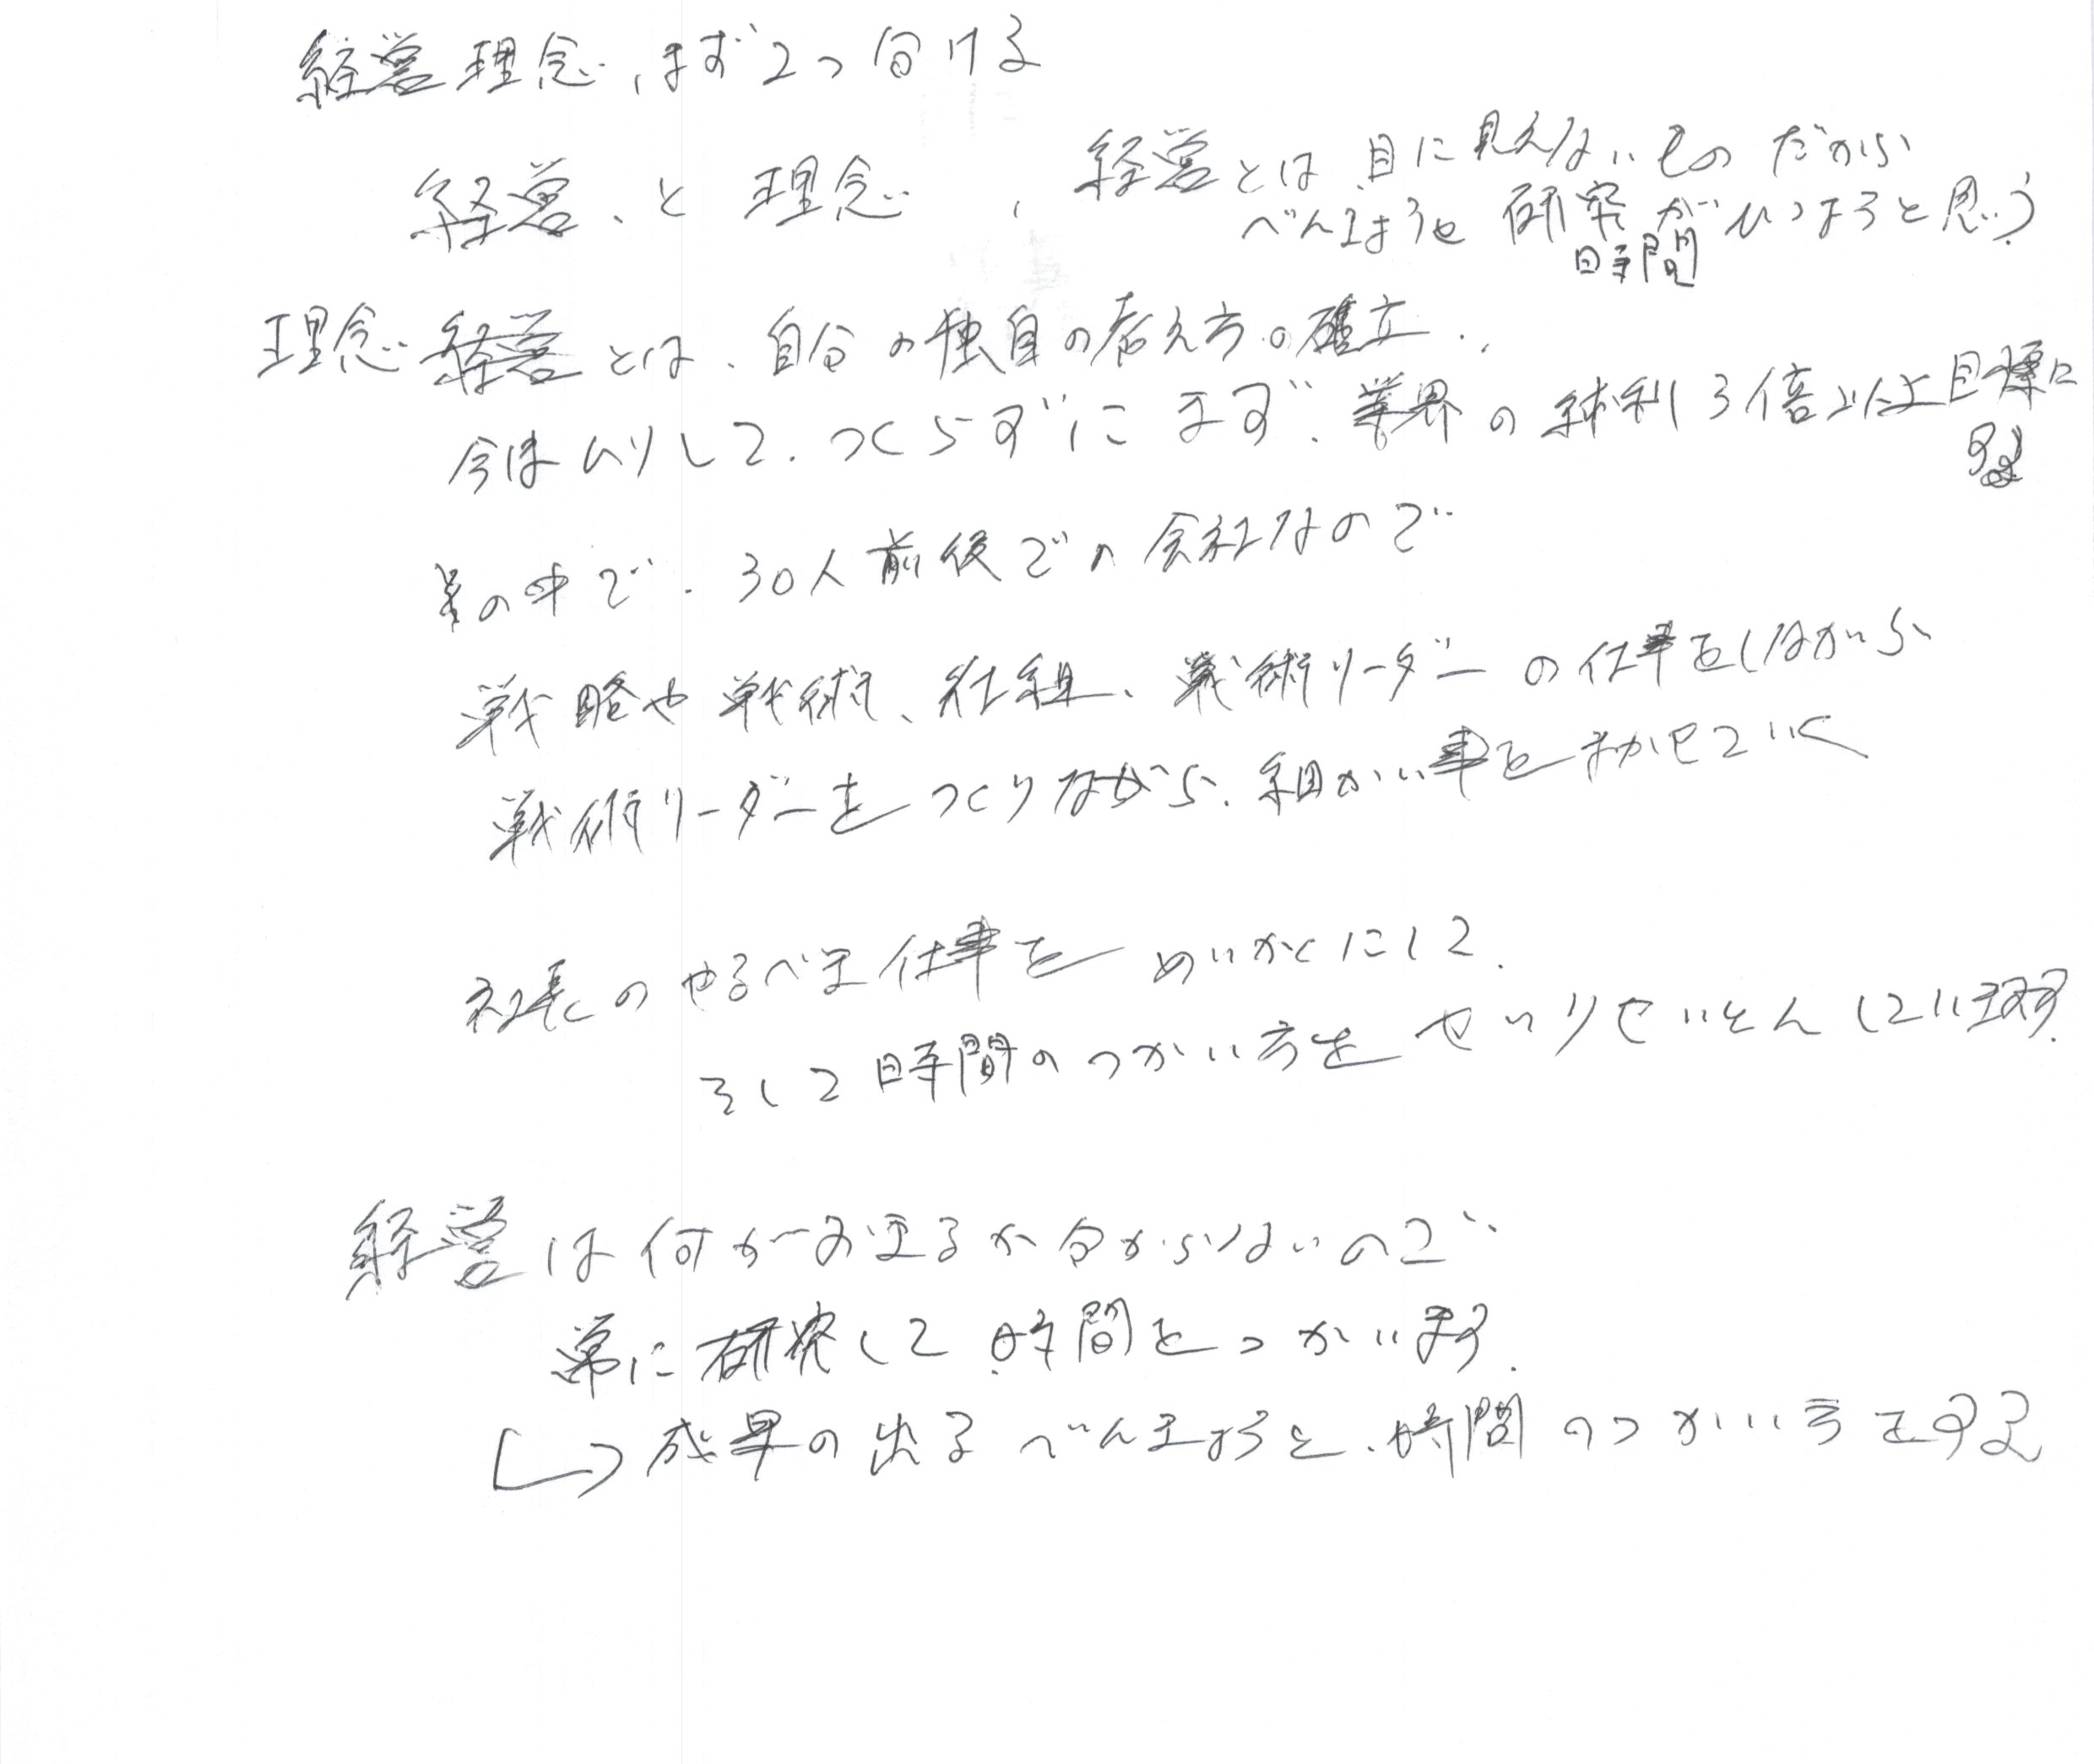 経営理念、まず2つ分ける
経営、と 理念、経営とは、目に見えないものだから
べんきょうと研究がひつようと思う
時間
理念経営とは、自分の独自の考え方の確立.
今はムリして、つくらずにまず、業界の純利3倍以上目標に
する
その中で、30人前後での会社なので
戦略や戦術、仕組、戦術リーダーの仕事をしながら
戦術リーダーをつくりながら、細かい事をまかせていく
社長のやるべき仕事をめいかくにして、
そして時間のつかい方をせいりせいとんしています.
経営は何がおきるか分からないので
常に研究して時間をつかいます.
成果の出るべんきょうと、時間のつかい方をする